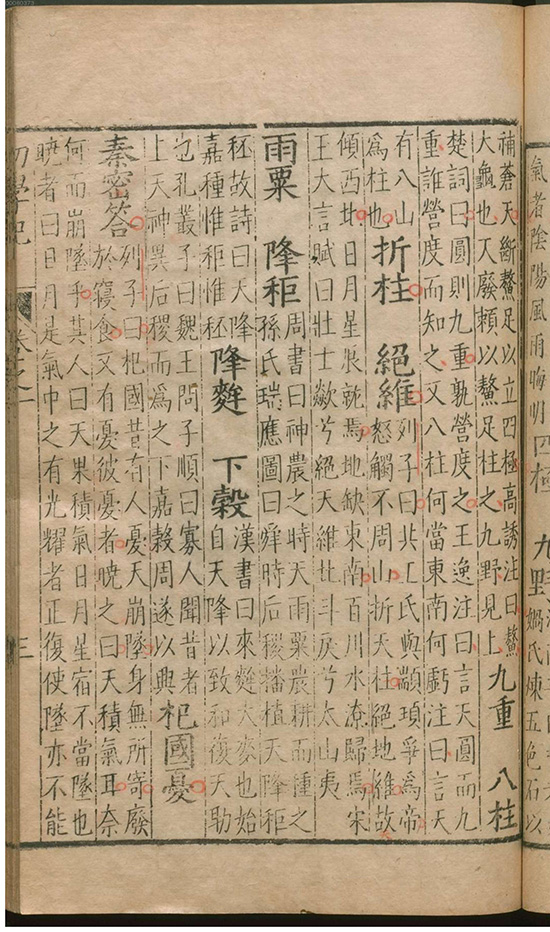 氣者陰陽風雨晦明
四極 九
媧氏煉五色石以
補蒼天斷鼇足以立四極高誘注曰鼇
大龜也天廢頼以鼇足柱之九野見上
九重 八柱
楚詞曰圓則九重孰營度之王逸注曰言天圓而九
重誰營度而知之又八柱何當東南何虧注曰言天
有八山
爲柱也
折柱 絕維
列子曰共工氏與顓頊爭爲帝
怒觸不周山折天柱絕地維故
傾西北日月星辰就焉地缺東南百川水潦歸焉宋
王大言賦曰壯士歘兮絕天維北斗戾兮太山夷
雨粟 降秬
周書曰神農之時天雨粟農耕而種之
孫氏瑞應圖曰舜時后稷播植天降秬
秠故詩曰天降
嘉種惟秬惟秠
降麰 下穀
漢書曰來麰大麥也始
自天降以致和復天助
也孔叢子曰魏王問子順曰寡人聞昔者
上天神異后稷而爲之下嘉穀周遂以興
杞國憂
秦密答
列子曰杞國昔有人憂天崩墜身無所寄廢
於寢食又有憂彼憂者曉之曰天積氣耳奈
何而崩墜乎其人曰天果積氣日月星宿不當墜也
曉者曰日月是氣中之有光耀者正復使墜亦不能
初學記 卷之一 三